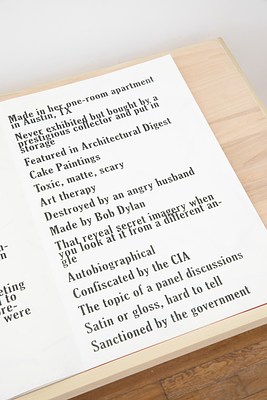 Made in her one-room apartment
in Austin, TX
Never exhibited but bought by a
prestigious collector and put in
storage
Featured in Architectural Digest
Cake Paintings
Toxic, matte, scary
Art therapy
Destroyed by an angry husband
Made by Bob Dylan
That reveal secret imagery when
you look at it from a different an-
gle
Autobiographical
Confiscated by the CIA
The topic of a panel discussions
Satin or gloss, hard to tell
Sanctioned by the government
to
were